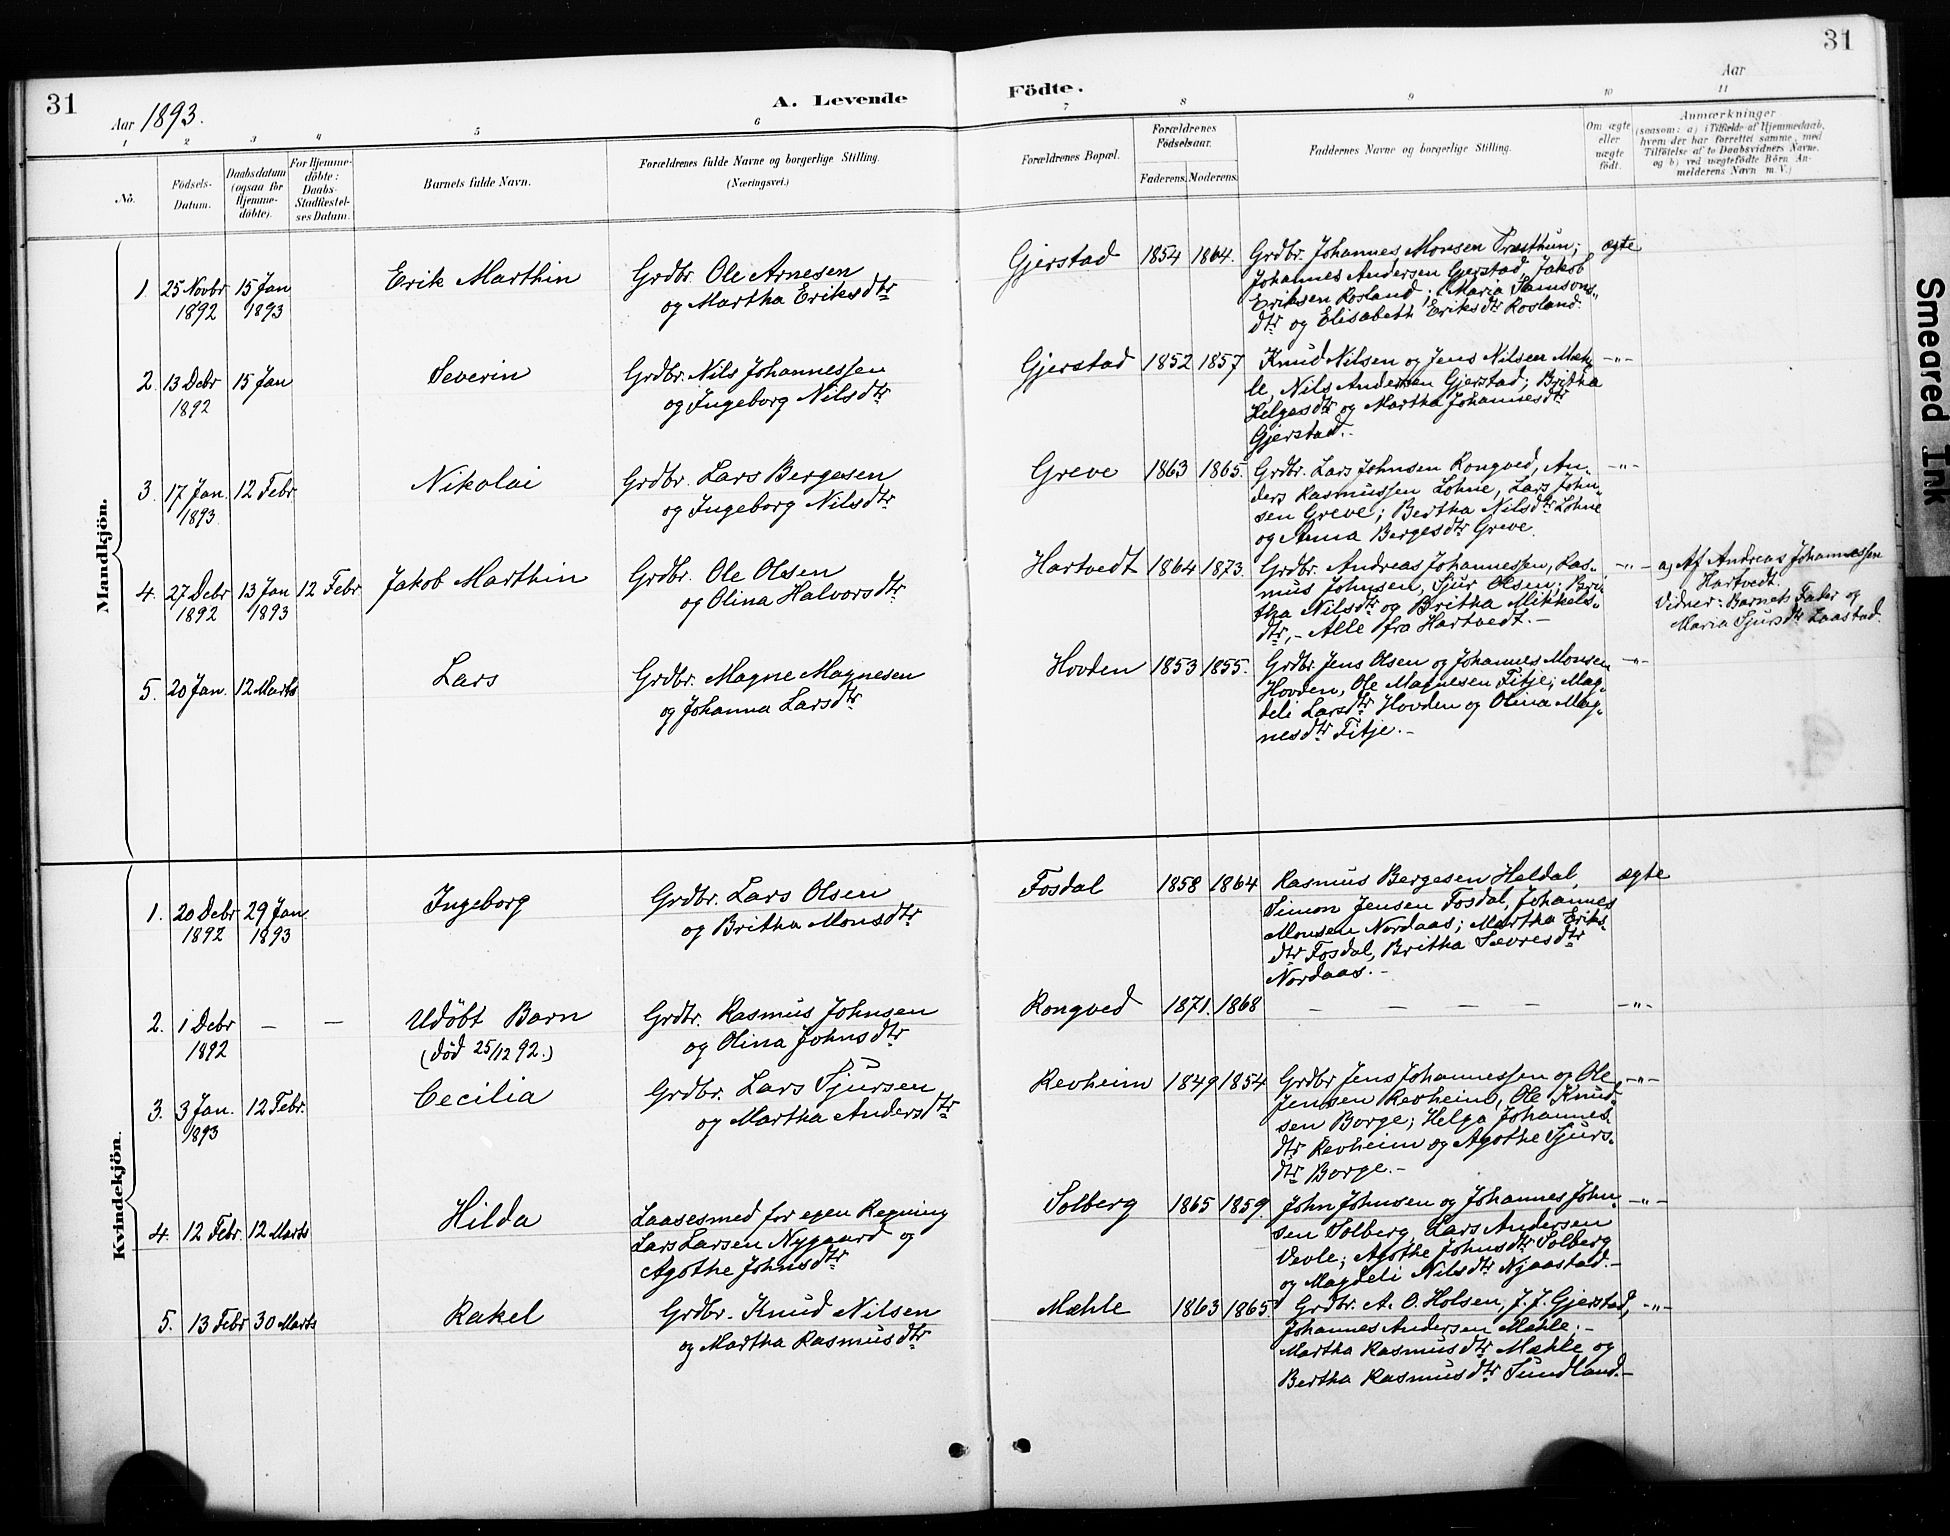 31
Aar 1893.
A. Levende
Födte.
Aar
31
1
2
3
4
5
6
7
8
9
10
11
No.
Födsels-
Datum.
Daabsdatum
(ogsaa for
Hjemme-
döbte).
For Hjemme-
döbte:
Daabs-
Stadfæstel-
ses Datum.
Barnets fulde Navn.
Forældrenes fulde Navne og borgerlige Stilling.
(Næringsvei.)
Forældrenes Bopæl.
Forældrenes
Födselsaar.
Faderens.
Moderens.
Faddernes Navne og borgerlige Stilling.
Om ægte
eller
uægte
födt.
Anmærkninger
(saasom: a) i Tilfælde af Hjemmedaab,
hvem der har forrettet samme, med
Tilföielse af to Daabsvidners Navne,
og b) ved uægtefödte Börn An-
melderens Navn m. V.)
Mandkjön.
1. 25 Novbr 1892
15 Jan 1893
Erik Marthin
Grdbr. Ole Arnesen
og Martha Eriksdtr
Gjerstad
1854
1864.
Grdbr. Johannes Monsen Træsthun;
Johannes Andersen Gjerstad, Jakob
Eriksen Rosland; Maria Samsons-
dtr og Elisabeth Eriksdtr Rosland.
ægte
2. 13 Debr 1892
15 Jan
Severin
Grdbr. Nils Johannessen
og Ingeborg Nilsdtr
Gjerstad
1852
1857
Knud Nilsen og Jens Nilsen Mæh-
le, Nils Andersen Gjerstad; Britha
Helgesdtr og Martha Johannesdtr
Gjerstad.
-"-
3. 17 Jan. 1893
12 Febr.
Nikolai
Grdbr. Lars Bergesen
og Ingeborg Nilsdtr
Greve
1863
1865.
Grdbr. Lars Johnsen Rongved, An-
ders Rasmussen Lohne, Lars John-
sen Greve; Bertha Nilsdtr Lohne
og Anna Bergesdtr Greve.
-"-
4. 27 Debr 1892
13 Jan 1893
12 Febr
Jakob Marthin
Grdbr. Ole Olsen
og Olina Halvorsdtr
Hartvedt
1864
1873.
Grdbr. Andreas Johannessen, Ras-
mus Johnsen, Sjur Olsen; Bri-
tha Nilsdtr og Britha Mikkels-
dtr, - Alle fra Hartvedt. -
-"-
a) Af Andreas Johannessen
Hartvedt.
Vidner: Barnets Fader og
Maria Sjursdtr Laastad.
5. 20 Jan.
12 Marts
Lars
Grdbr. Magne Magnesen
og Johanna Larsdtr
Hovden
1853
1855.
Grdbr. Jens Olsen og Johannes Monsen
Hovden, Ole Magnesen Fitje; Mag-
deli Larsdtr Hovden og Olina Mag-
nesdtr Fitje. -
-"-
Kvindekjön.
1. 20 Debr 1892
29 Jan. 1893
Ingeborg
Grdbr. Lars Olsen
og Britha Monsdtr
Fosdal
1858
1864
Rasmus Bergesen Heldal,
Simon Jensen Fosdal, Johannes
Monsen Nordaas; Martha Eriks-
dtr Fosdal, Britha Sævresdtr
Nordaas. -
ægte
2. 1 Debr 1892
-
-
Udöbt Barn
(död 25/12 92.)
Grdbr. Rasmus Johnsen
og Olina Johnsdtr
Rongved
1871.
1868
- - - -
-"-
3. 3 Jan. 1893
12 Febr.
Cecilia
Grdbr. Lars Sjursen
og Martha Andersdtr
Revheim
1849
1854
Grdbr Jens Johannessen og Ole
Jensen Revheim, Ole Knud-
sen Borge; Helga Johannes-
dtr Revheim og Agothe Sjurs-
dtr Borge. -
-"-
4. 12 Febr.
12 Marts
Hilda
Laasesmed for egen Regning
Lars Larsen Nygaard og
Agothe Johnsdtr
Solberg
1865
1859.
John Johnsen og Johannes John-
sen Solberg, Lars Andersen
Vevle; Agothe Johnsdtr Solberg
og Magdeli Nilsdtr Njaastad. -
-"-
5. 13 Febr
30 Marts
Rakel
Grdbr. Knud Nilsen
og Martha Rasmusdtr
Mæhle
1863
1865.
Grdbr. A. O. Holsen, J. J. Gjerstad,
Johannes Andersen Mæhle; -
Martha Rasmusdtr Mæhle og
Bertha Rasmusdtr Sundland. -
-"-
Smeared Ink